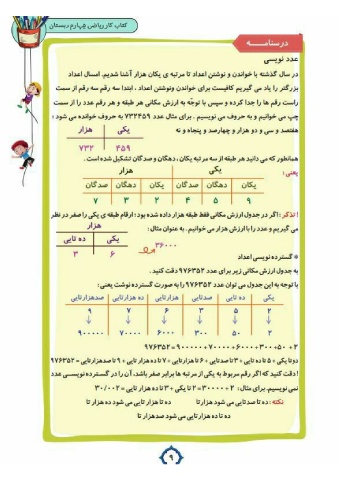 کتاب کار ریاضی چهارم دبستان
درسنامه
عدد نویسی
در سال گذشته با خواندن و نوشتن اعداد تا مرتبه ی یکان هزار آشنا شدیم. امسال اعداد
بزرگتر را یاد می گیریم کافیست برای خواندن ونوشتن اعداد ، ابتدا سه رقم سه رقم از سمت
راست رقم ها را جدا کرده و سپس با توجّه به ارزش مکانی هر طبقه و هر رقم عدد را از سمت
چپ می خوانیم و به حروف می نویسیم . برای مثال عدد ۷۳۲۴۵۹ به حروف خوانده می شود :
هفتصد و سی و دو هزار و چهارصد و پنجاه و نه
یکی هزار
۴۵۹ ۷۳۲
همانطور که می دانید هر طبقه از سه مرتبه یکان ، دهگان و صدگان تشکیل شده است .
یعنی :
یکی هزار
یکان دهگان صدگان یکان دهگان صدگان
۹ ۵ ۴ ۲ ۳ ۷
! تذکر : اگر در جدول ارزش مکانی فقط طبقه هزار داده شده بود ؛ ارقام طبقه ی یکی را صفر در نظر
می گیریم و عدد را با ارزش هزار می خوانیم . به عنوان مثال :
هزار
یکی ده تایی
۶ ۳
۳۶۰۰۰
* گسترده نویسی اعداد
به جدول ارزش مکانی زیر برای عدد ۹۷۶۳۵۲ دقت کنید .
با توجه به این جدول می توان عدد ۹۷۶۳۵۲ را به صورت گسترده نوشت یعنی :
یکی ده تایی صدتایی هزارتایی ده هزارتایی صدهزارتایی
۲ ۵ ۳ ۶ ۷ ۹
۲ ۵۰ ۳۰۰ ۶۰۰۰ ۷۰۰۰۰ ۹۰۰۰۰۰
۹۷۶۳۵۲ = ۹۰۰۰۰۰ + ۷۰۰۰۰ + ۶۰۰۰ + ۳۰۰ + ۵۰ + ۲
دوتا یکی + ۵ تا ده تایی + ۳ تا صدتایی + ۶ تا هزارتایی + ۷ تا ده هزار تایی + ۹ تا صدهزارتایی = ۹۷۶۳۵۲
! دقت کنید که اگر رقم مربوط به یکی از مرتبه ها برابر صفر باشد، آن را در گسترده نویسی عدد
نمی نویسیم. برای مثال : ۲ + ۳۰۰۰۰ = ۲ تا یکی + ۳ تا ده هزار تایی = ۳۰/۰۰۲
نکته : ده تا صدتایی می شود هزارتا ده تا هزار تایی می شود ده هزار تا
ده تا ده هزار تایی می شود صدهزار تا
۹